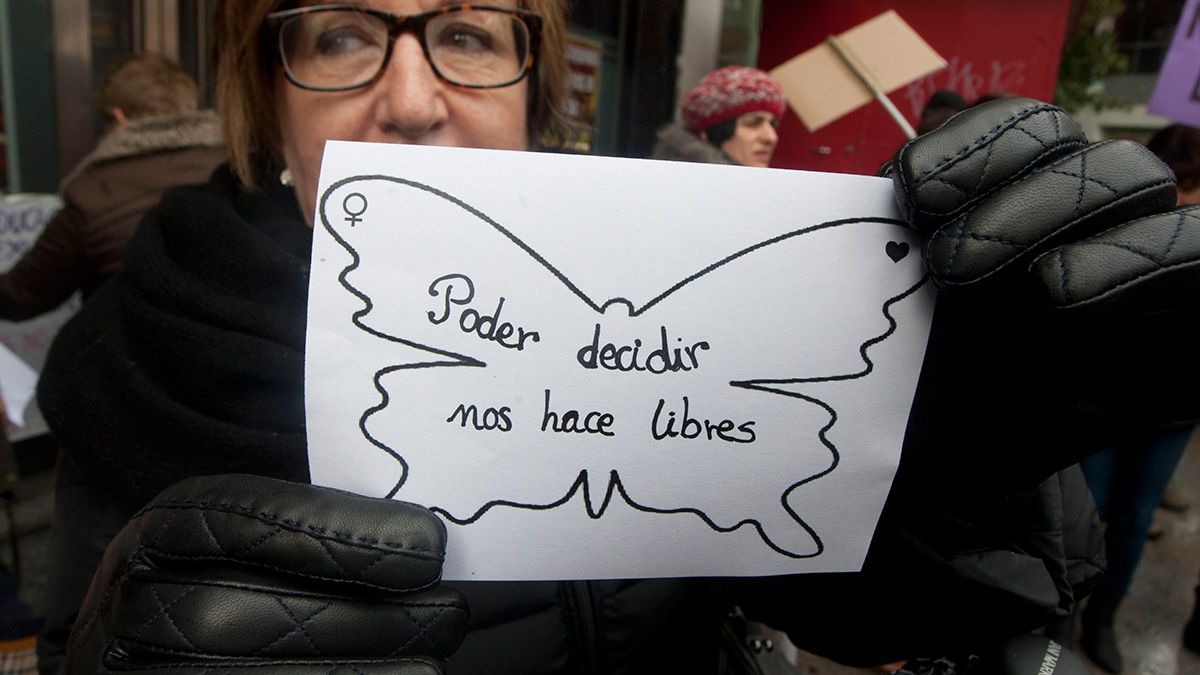 Poder decidir
nos hace libres